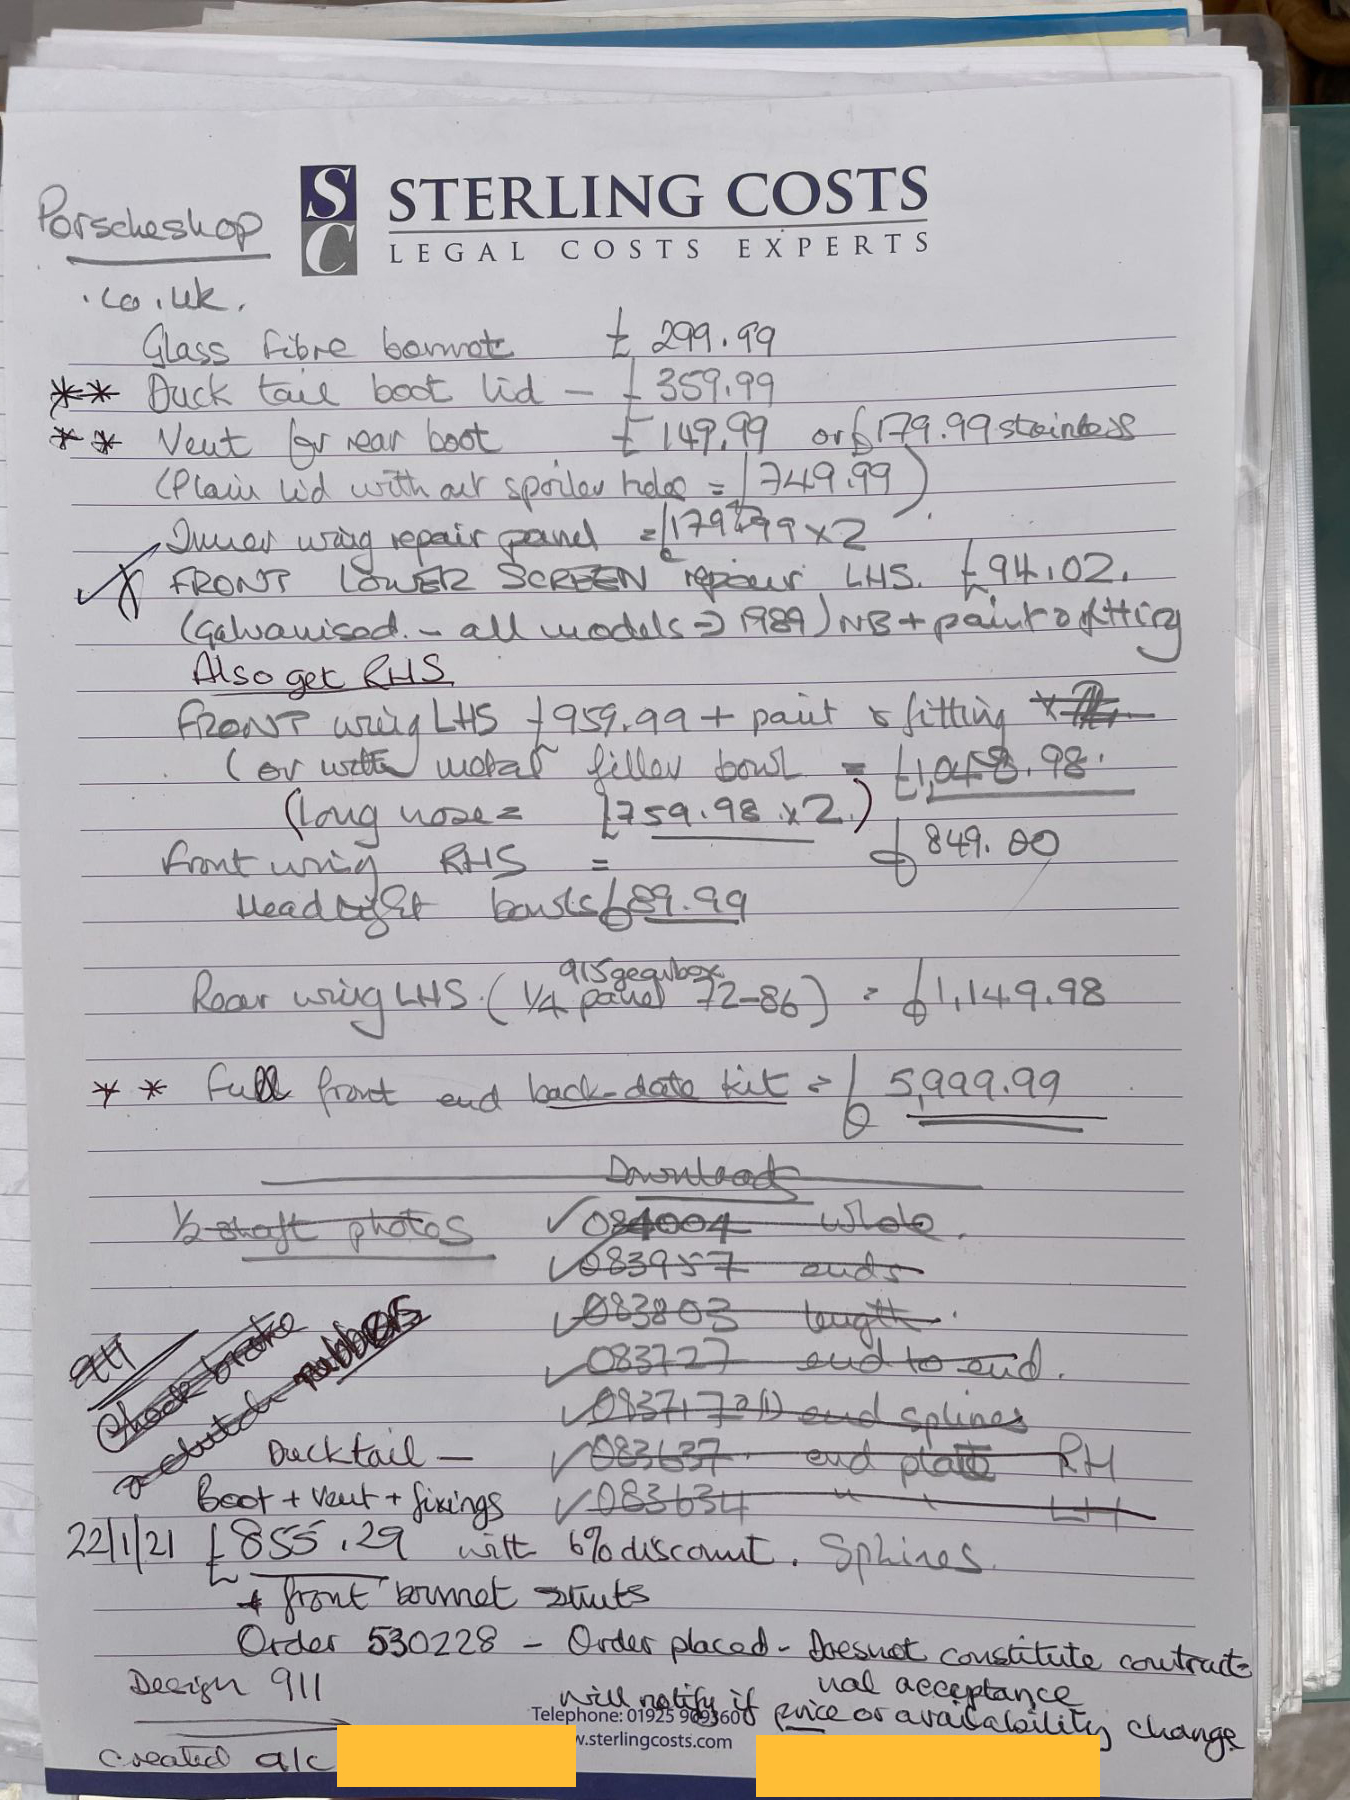 Porscheshop
.co.uk.
SC STERLING COSTS
LEGAL COSTS EXPERTS
Glass fibre bonnot £ 299.99
** Duck tail boot lid - £ 359.99
** Vent for rear boot £ 149.99 or £179.99 stainless
(Plain lid without spoiler holes = £749.99)
Inner wing repair panel = £179.99 x 2
FRONT LOWER SCREEN repair LHS. £94.02.
(Galvanised. - all models → 1989) NB + paint & fitting
Also get RHS
FRONT wing LHS £959.99 + paint & fitting
(or with metal filler bowl = £1,058.98.
(Long nose = £759.98 x 2.)
Front wing RHS = £849.00
Headlight bowls £89.99
915 gearbox
Rear wing LHS. (1/4 panel 72-86) = £1,149.98
** Full front end back-date kit = £ 5,999.99
Downloads
1/2 shaft photos ✓ 084004 whole.
✓ 083957 ends
✓ 083803 length.
✓ 083727 end to end.
✓ 083717 2(1) end splines
911
Check brake
& clutch rubbers
Ducktail - ✓ 083637. end plate RH
Boot + vent + fixings ✓ 083634 " " LH
22/1/21 £855.29 with 6% discount. Splines.
+ front bonnet struts
Order 530228 - Order placed - Does not constitute contract-
ual acceptance
Design 911
will notify if price or availability change
Telephone: 01925 909360
w.sterlingcosts.com
created a/c